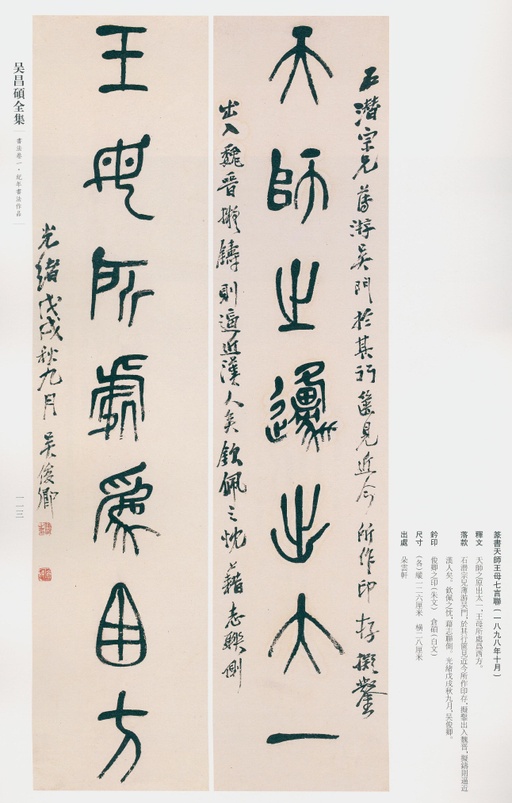 石潛宗兄薄游吳門於其行篋見近今所作印存擬鑿
天師之邍出大一
出入魏晉擬鑄則逼近漢人矣欽佩之忱藉志聯側
王母所處爲西方
光緒戊戌秋九月 吳俊卿
篆書天師王母七言聯(一八九八年十月)
釋文 天師之原出太一,王母所處爲西方。
落款 石潛宗兄薄游吳門,於其行篋見近今所作印存,擬鑿出入魏晉,擬鑄則逼近
漢人矣。欽佩之忱,藉志聯側。光緒戊戌秋九月,吳俊卿。
鈐印 俊卿之印(朱文) 倉碩(白文)
尺寸 (各)縱一二六厘米 橫二八厘米
出處 朵雲軒
吳昌碩全集 書法卷一·紀年書法作品
一一三